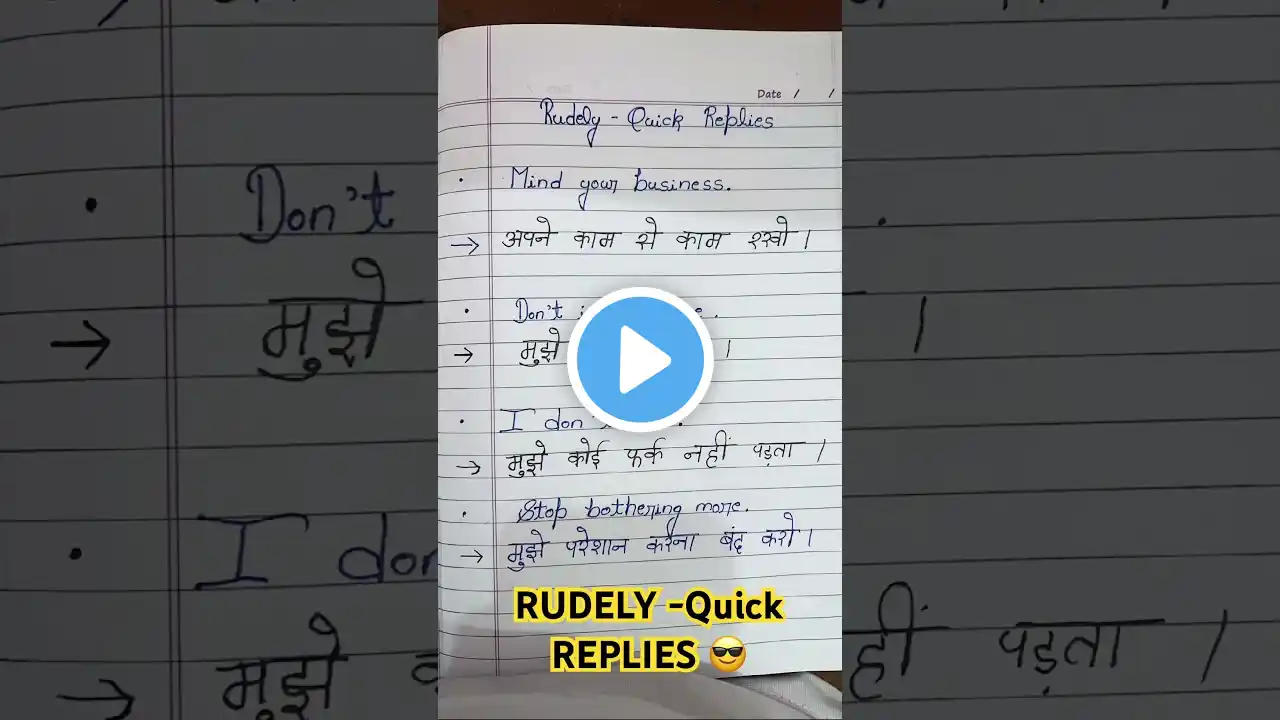 Date / /
Rudely - Quick Replies
. Mind your business.
→ अपने काम से काम रखो ।
. Don't
→ मुझे ।
. I don't
→ मुझे कोई फर्क नहीं पड़ता ।
. Stop bothering more.
→ मुझे परेशान करना बंद करो ।
RUDELY -Quick
REPLIES 😎